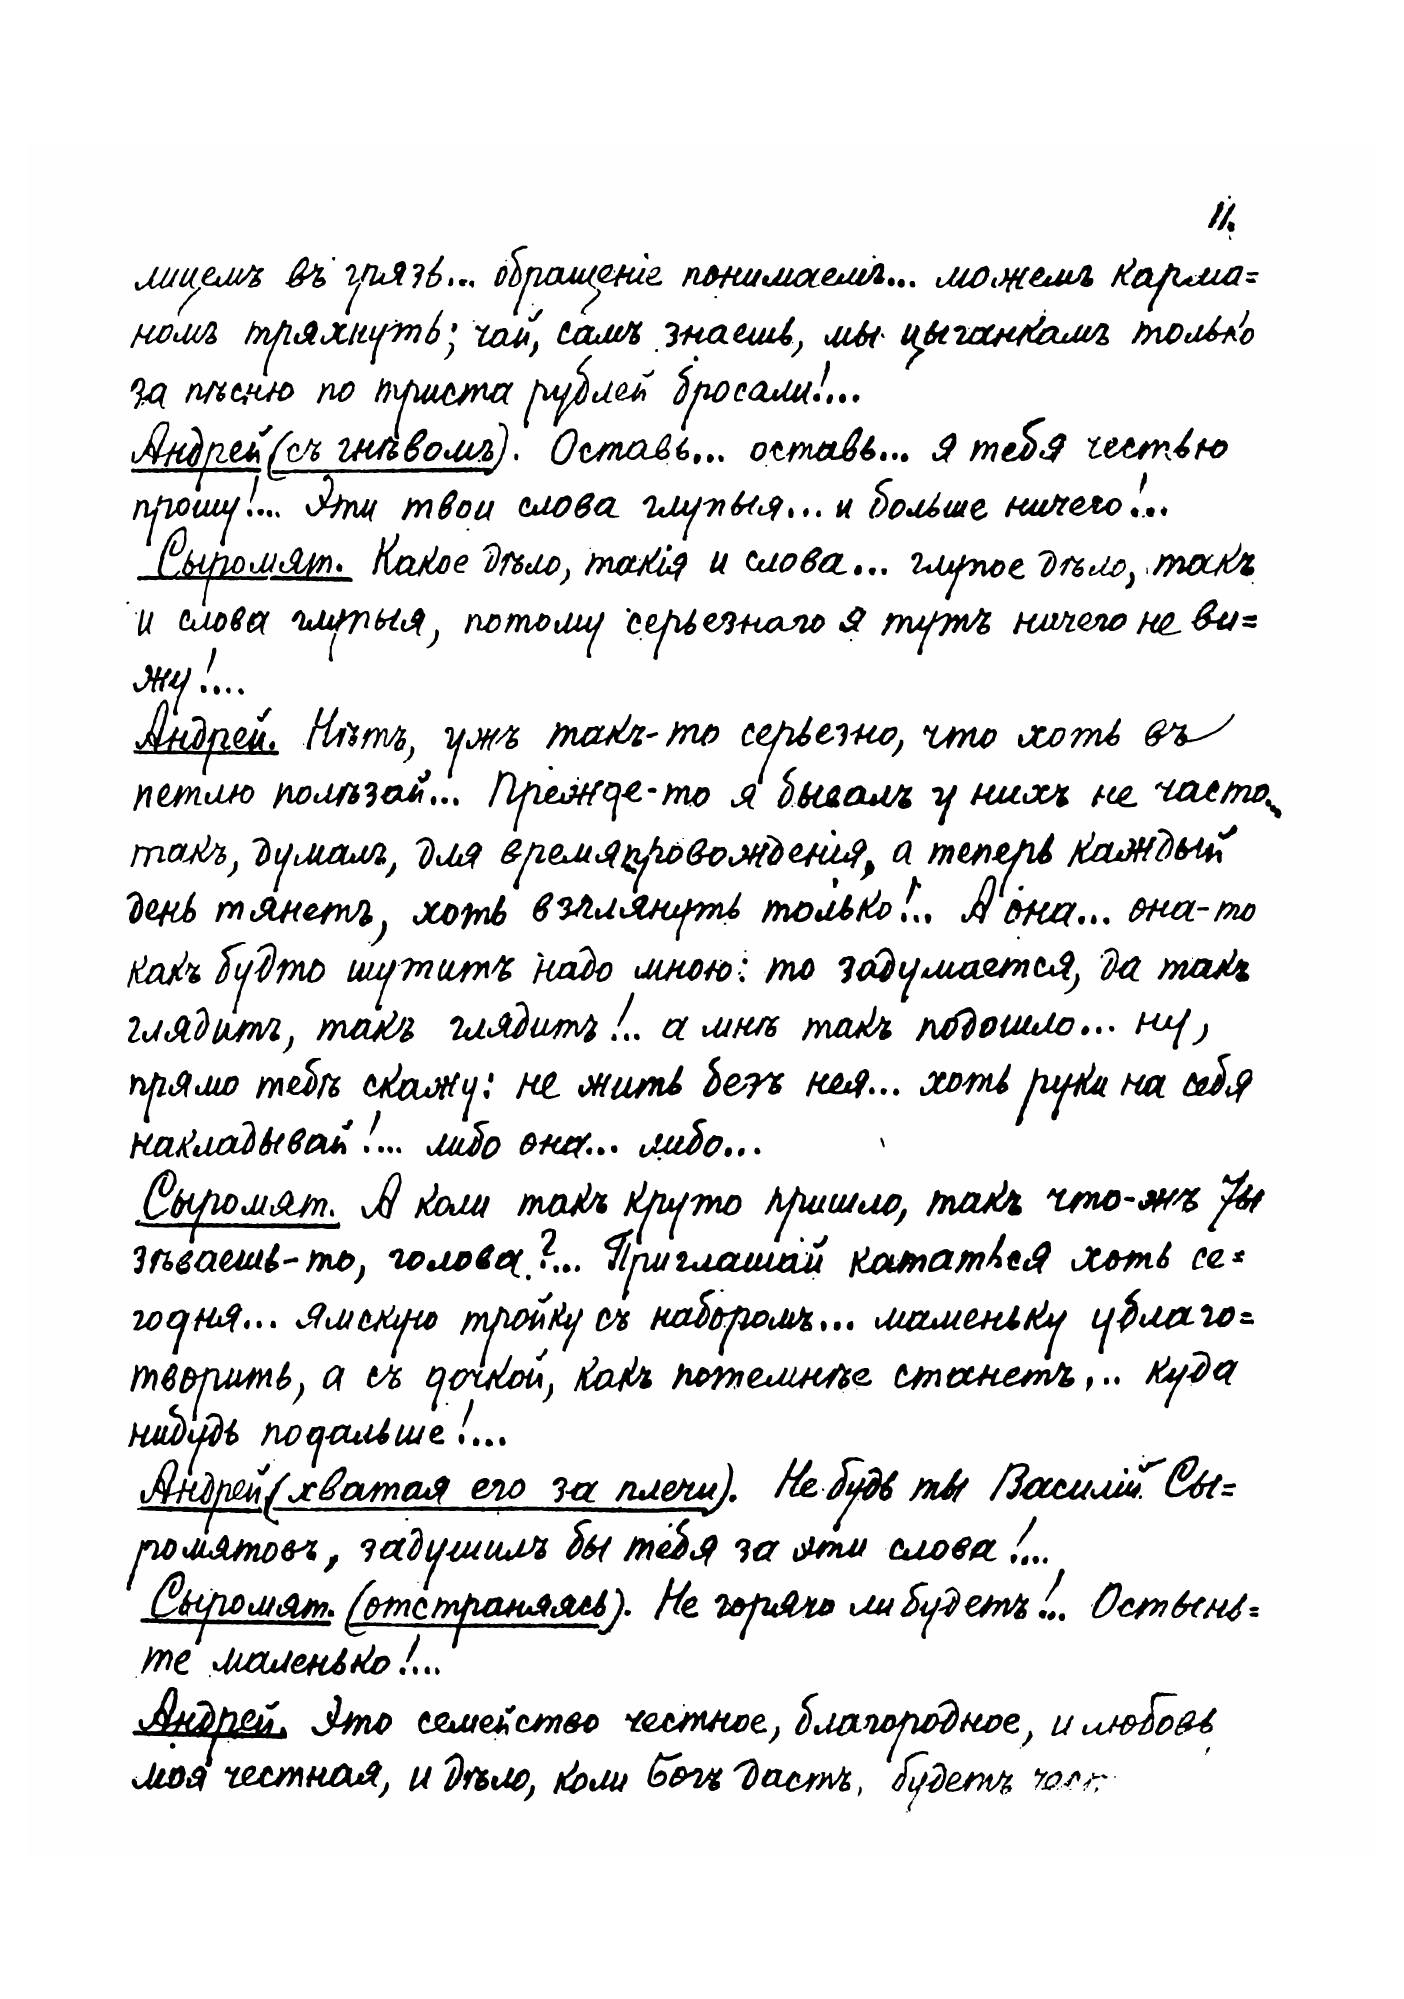 11.
лицемъ въ грязь... обращеніе понимаемъ... можемъ карма=
номъ тряхнуть; чай, самъ знаешь, мы цыганкамъ только
за пѣсню по триста рублей бросали!...
Андрей (съ гнѣвомъ). Оставь... оставь... я тебя честью
прошу!... Эти твои слова глупыя... и больше ничего!..
Сыромят. Какое дѣло, такія и слова... глупое дѣло, такъ
и слова глупыя, потому серьезнаго я тутъ ничего не ви=
жу!...
Андрей. Нѣтъ, ужъ такъ-то серьезно, что хоть въ
петлю полѣзай... Прежде-то я бывалъ у нихъ не часто...
такъ, думалъ, для времяпровожденія, а теперь каждый
день тянетъ, хоть взглянуть только!.. А она... она-то
какъ будто шутитъ надо мною: то задумается, да такъ
глядитъ, такъ глядитъ!.. а мнѣ такъ подошло... ну,
прямо тебѣ скажу: не жить безъ нея... хоть руки на себя
накладывай!... либо она... либо...
Сыромят. А коли такъ круто пришло, такъ что-жъ ты
зѣваешь-то, голова?... Приглашай кататься хоть се=
годня... ямскую тройку съ наборомъ... маменьку ублаго=
творить, а съ дочкой, какъ потемнѣе станетъ... куда
нибудь подальше!...
Андрей (хватая его за плечи). Не будь ты Василій Сы=
ромятовъ, задушилъ бы тебя за эти слова!...
Сыромят. (отстраняясь). Не горячо ли будетъ!.. Остынь=
те маленько!...
Андрей. Это семейство честное, благородное, и любовь
моя честная, и дѣло, коли Богъ дастъ, будетъ